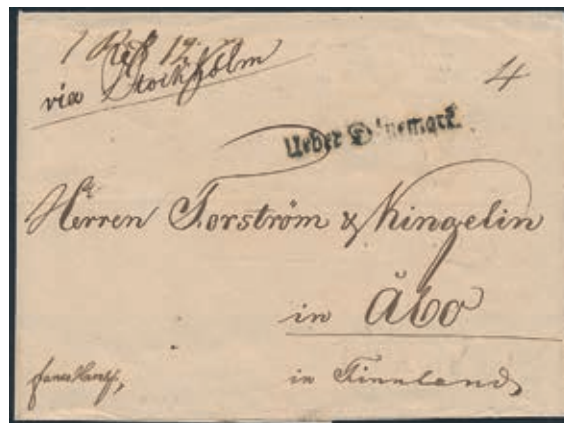 via Stockholm
4
Ueber Dänemark.
Herren Torström & Kingelin
in Åbo
in Finnland